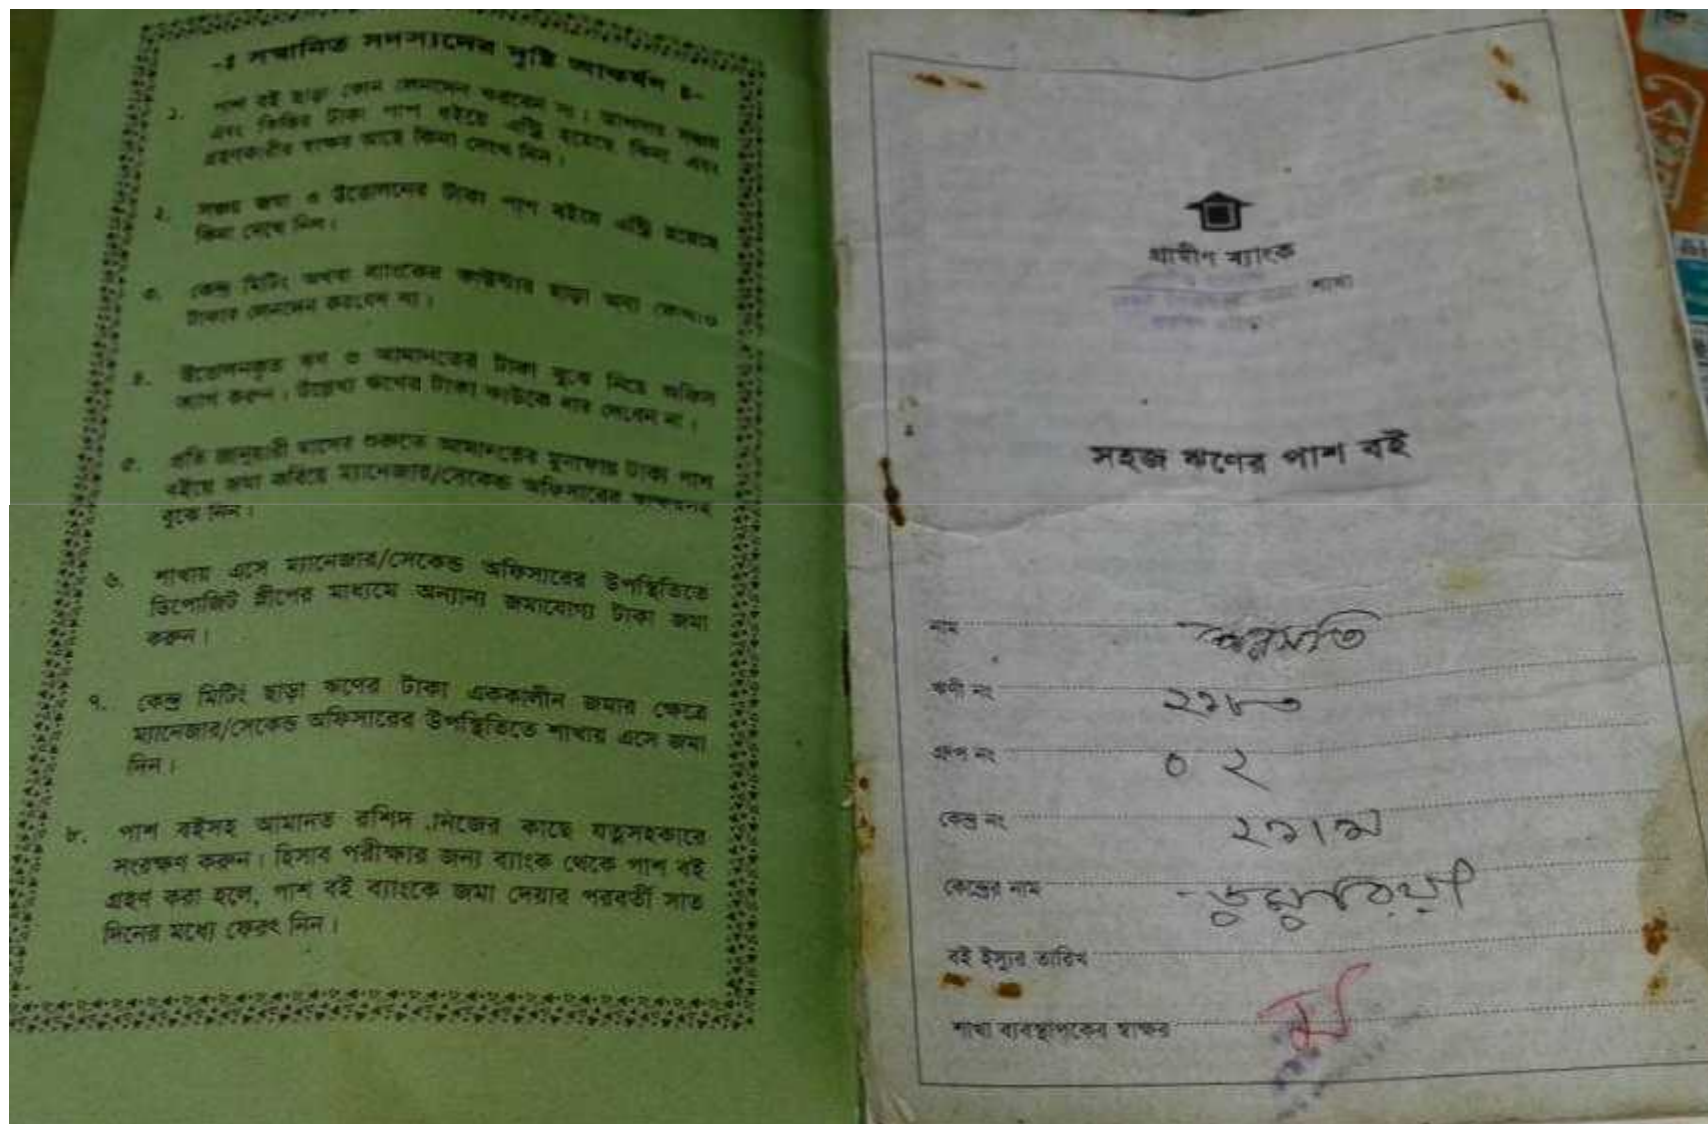 -ঃ সম্মানিত সদস্যদের দৃষ্টি আকর্ষন ঃ-
১. পাশ বই ছাড়া কোন লেনদেন করবেন না। আপনার সঞ্চয়
এবং কিস্তির টাকা পাশ বইয়ে এন্ট্রি হয়েছে কিনা এবং
গ্রহণকারীর স্বাক্ষর আছে কিনা দেখে নিন।
২. সঞ্চয় জমা ও উত্তোলনের টাকা পাশ বইয়ে এন্ট্রি হয়েছে
কিনা দেখে নিন।
৩. কেন্দ্র মিটিং অথবা ব্যাংকের কাউন্টার ছাড়া অন্য কোথাও
টাকার লেনদেন করবেন না।
৪. উত্তোলনকৃত ঋণ ও আমানতের টাকা বুঝে নিয়ে অফিস
ত্যাগ করুন। উল্লেখ্য ঋণের টাকা কাউকে ধার দেবেন না।
৫. প্রতি জানুয়ারী মাসের শুরুতে আমানতের মুনাফার টাকা পাশ
বইয়ে জমা করিয়ে ম্যানেজার/সেকেন্ড অফিসারের স্বাক্ষরসহ
বুঝে নিন।
৬. শাখায় এসে ম্যানেজার/সেকেন্ড অফিসারের উপস্থিতিতে
ডিপোজিট স্লীপের মাধ্যমে অন্যান্য জমাযোগ্য টাকা জমা
করুন।
৭. কেন্দ্র মিটিং ছাড়া ঋণের টাকা এককালীন জমার ক্ষেত্রে
ম্যানেজার/সেকেন্ড অফিসারের উপস্থিতিতে শাখায় এসে জমা
দিন।
৮. পাশ বইসহ আমানত রশিদ নিজের কাছে যত্নসহকারে
সংরক্ষণ করুন। হিসাব পরীক্ষার জন্য ব্যাংক থেকে পাশ বই
গ্রহণ করা হলে, পাশ বই ব্যাংকে জমা দেয়ার পরবর্তী সাত
দিনের মধ্যে ফেরৎ নিন।
গ্রামীণ ব্যাংক
শাখা
সহজ ঋণের পাশ বই
নাম
ঋণী নং
গ্রুপ নং ০২
কেন্দ্র নং
কেন্দ্রের নাম
বই ইস্যুর তারিখ
শাখা ব্যবস্থাপকের স্বাক্ষর